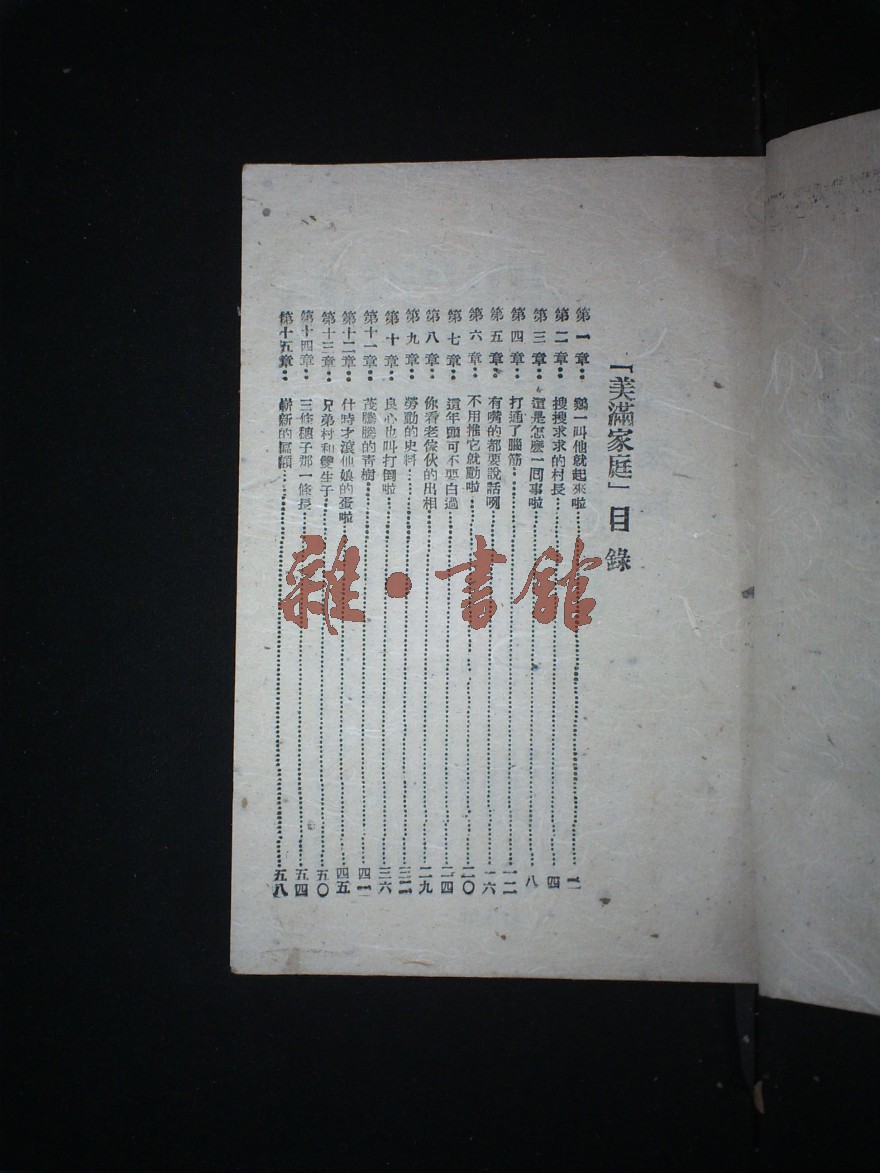 「美滿家庭」目錄
第一章：鷄一叫他就起來啦……二
第二章：搜搜求求的村長……四
第三章：這是怎麼一回事啦……八
第四章：打通了腦筋……一二
第五章：有嘴的都要說話咧……一六
第六章：不用推它就動啦……二〇
第七章：這年頭可不要白過……二四
第八章：你看老傢伙的出相……二九
第九章：勞動的史料……三二
第十章：良心也叫打倒啦……三六
第十一章：茂騰騰的青樹……四一
第十二章：什時才滾仙娘的蛋啦……四五
第十三章：兄弟村和雙生子……五〇
第十四章：三條穗子那一條長……五四
第十五章：嶄新的匾額……五八
雜·書館